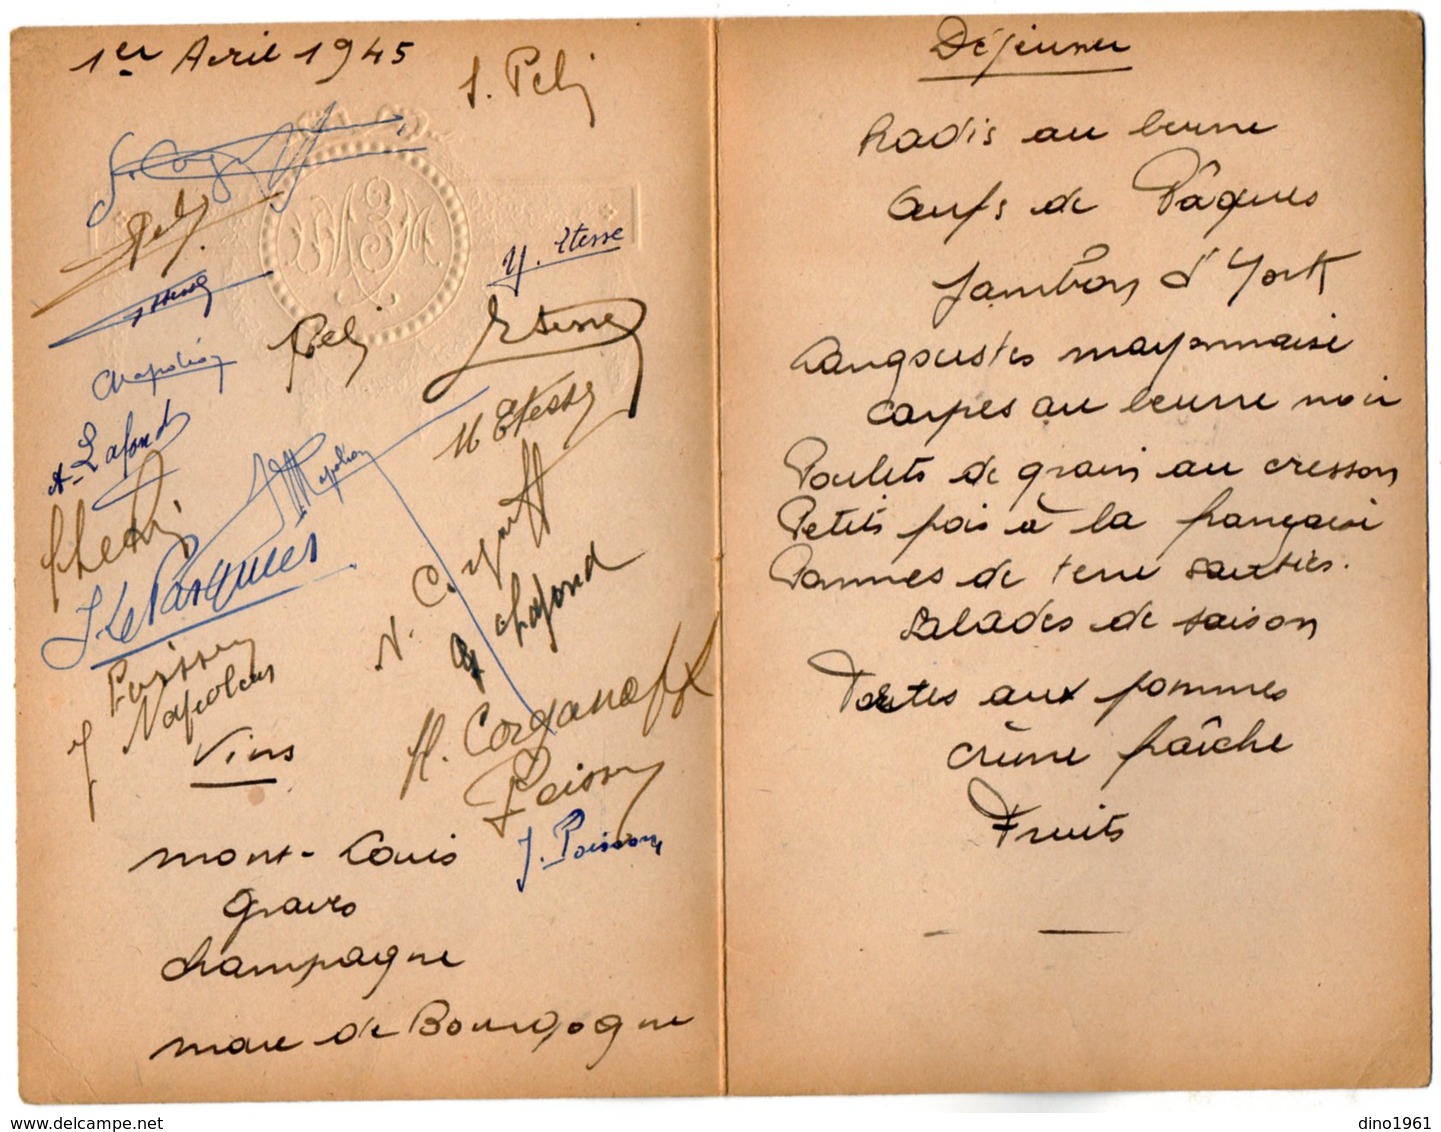 1er Avril 1945
S. Peli
Peli
Y. Etesse
Etesse
Peli
Etesse
Napoléon
M Etesse
A. Lafond
Napoléon
J Le Pasques
N. C.
Lafond
Poisson
Napoléon
H. Corganoff
Poisson
J. Poisson
Vins
mont-Louis
Graves
Champagne
marc de Bourgogne
Déjeuner
Radis au beurre
Œufs de Pâques
Jambon d'York
Langoustes mayonnaise
Carpes au beurre noir
Poulets de grain au cresson
Petits pois à la française
Pommes de terre sautées.
Salades de saison
Tartes aux pommes
crème fraîche
Fruits
dino1961